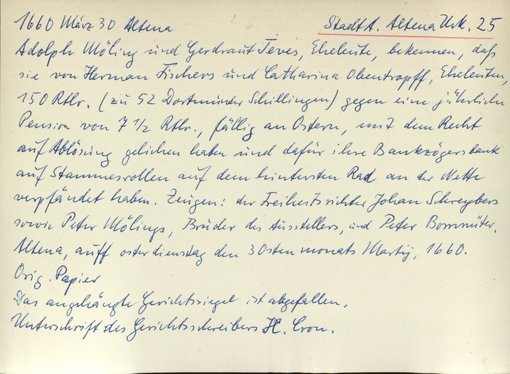 1660 März 30 Altena
StadtA. Altena Urk. 25
Adolph Möling und Gerdraut Teves, Eheleute, bekennen, daß
sie von Herman Fischers und Catharina Obentropff, Eheleuten,
150 Rtlr. (zu 52 Dortmunder Schillingen) gegen eine jährliche
Pension von 7 1/2 Rtlr., fällig an Ostern, mit dem Recht
auf Ablösung geliehen haben und dafür ihre Bankzögersbank
auf Stammesrollen auf dem hintersten Rad an der Nette
verpfändet haben. Zeugen: der Freiheitsrichter Johan Schreybers
sowie Peter Mölings, Bruder des Ausstellers, und Peter
Altena, auff osterdienstag den 30sten monats Martij, 1660.
Orig. Papier
Das angehängte Gerichtssiegel ist abgefallen.
Unterschrift des Gerichtsschreibers H. Cron.